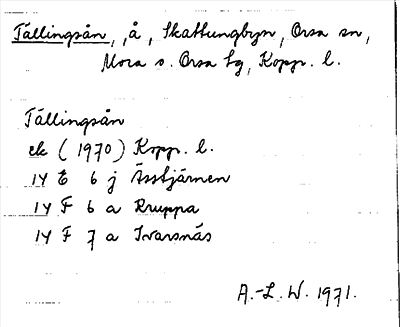 Tällingsån, å, Skattungbyn, Orsa sn,
Mora o. Orsa tg, Kopp. l.
Tällingsån
ek (1970) Kopp. l.
14 E 6 jÄsstjärnen
14 F 6 a Kruppa
14 F 7 a Ivarsnäs
A.-L. W. 1971.